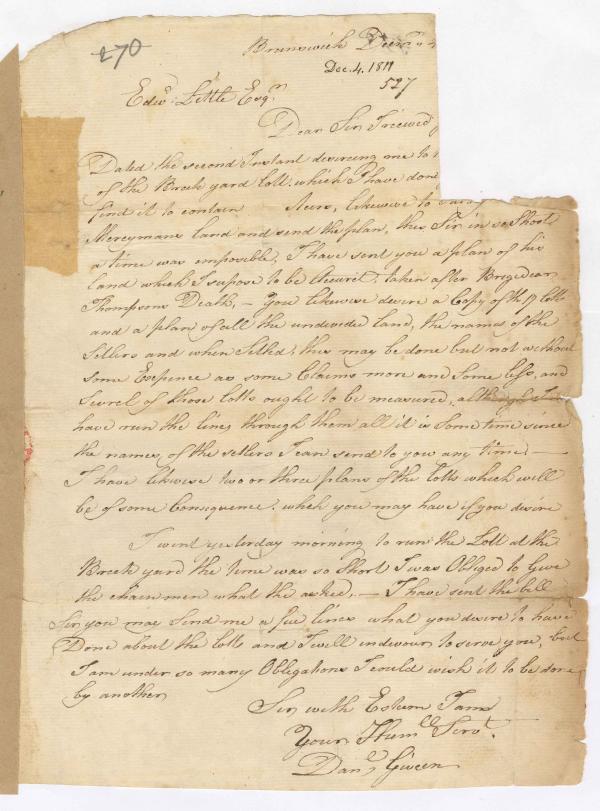 270
Brunswick Decmr 4
Dec. 4, 1811
527
Edwd Little Esqr
Dear Sir, I receved
Dated the second Instant desireing me to
of the Brick yard Lott, which I have done
find it to contain Acres, likewise to
Merrymans Land and send the plan, this Sir in so Short
a time was imposible, I have sent you a plan of his
Land which I supose to be Acurit, taken after Brigedear
Thompsons Death, – You likewise desire a Copy of the lotts
and a plan of all the undevided Land, the names of the
Setlers and when Setled, this may be done but not without
some Expence as some Claims more and Some less, and
Sevrel of those lotts ought to be measured, although I
have run the lines through them all it is some time since
the names of the setlers I can send to you any time –
I have likwise two or three plans of the Lotts which will
be of some Consequence, which you may have if you desire
I went yesterday morning to run the Lott at the
Brick yard the time was so Short I was Obliged to Give
the chainmen what the asked, – I have sent the bill
Sir, you may Send me a few lines what you desire to have
Done about the lotts and I will indevour to serve you, but
I am under so many Obligations I could wish it to be done
by another
Sir with Esteem I am
Your Humll Servt
Danl Given